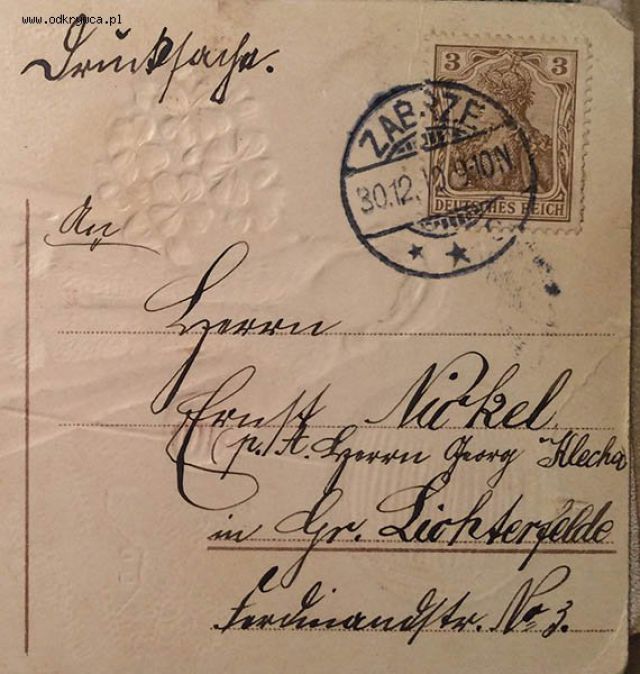 www.odkrywca.pl
Drucksache.
3 3
ZABRZE
30.12.10.9-10N
DEUTSCHES REICH
An
Herrn
Ernst Nickel
p. A. Herrn Georg Klecha
in Gr. Lichterfelde
Ferdinandstr. No 3.